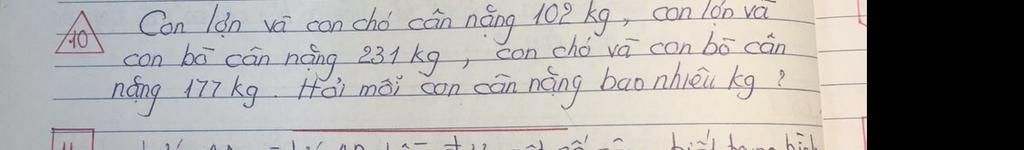 10 Con lợn và con chó cân nặng 102 kg, con lợn và
con bò cân nặng 231 kg, con chó và con bò cân
nặng 177 kg. Hỏi mỗi con cân nặng bao nhiêu kg?